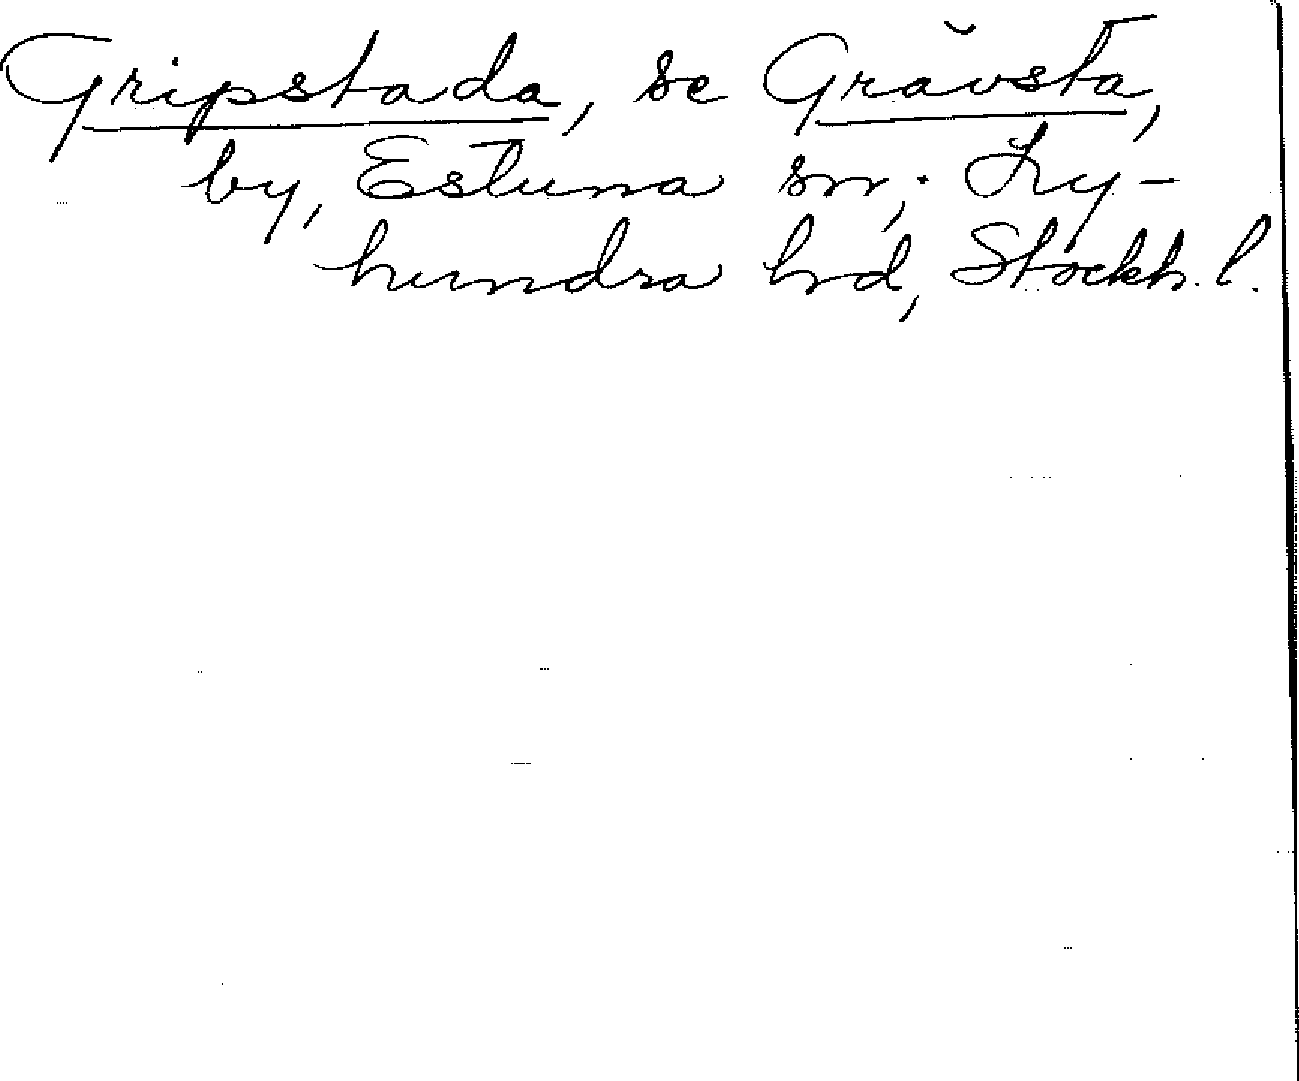 Gripstada, se Gråvsta,
by, Estuna sn, Ly-
hundra hd, Stockh. l.